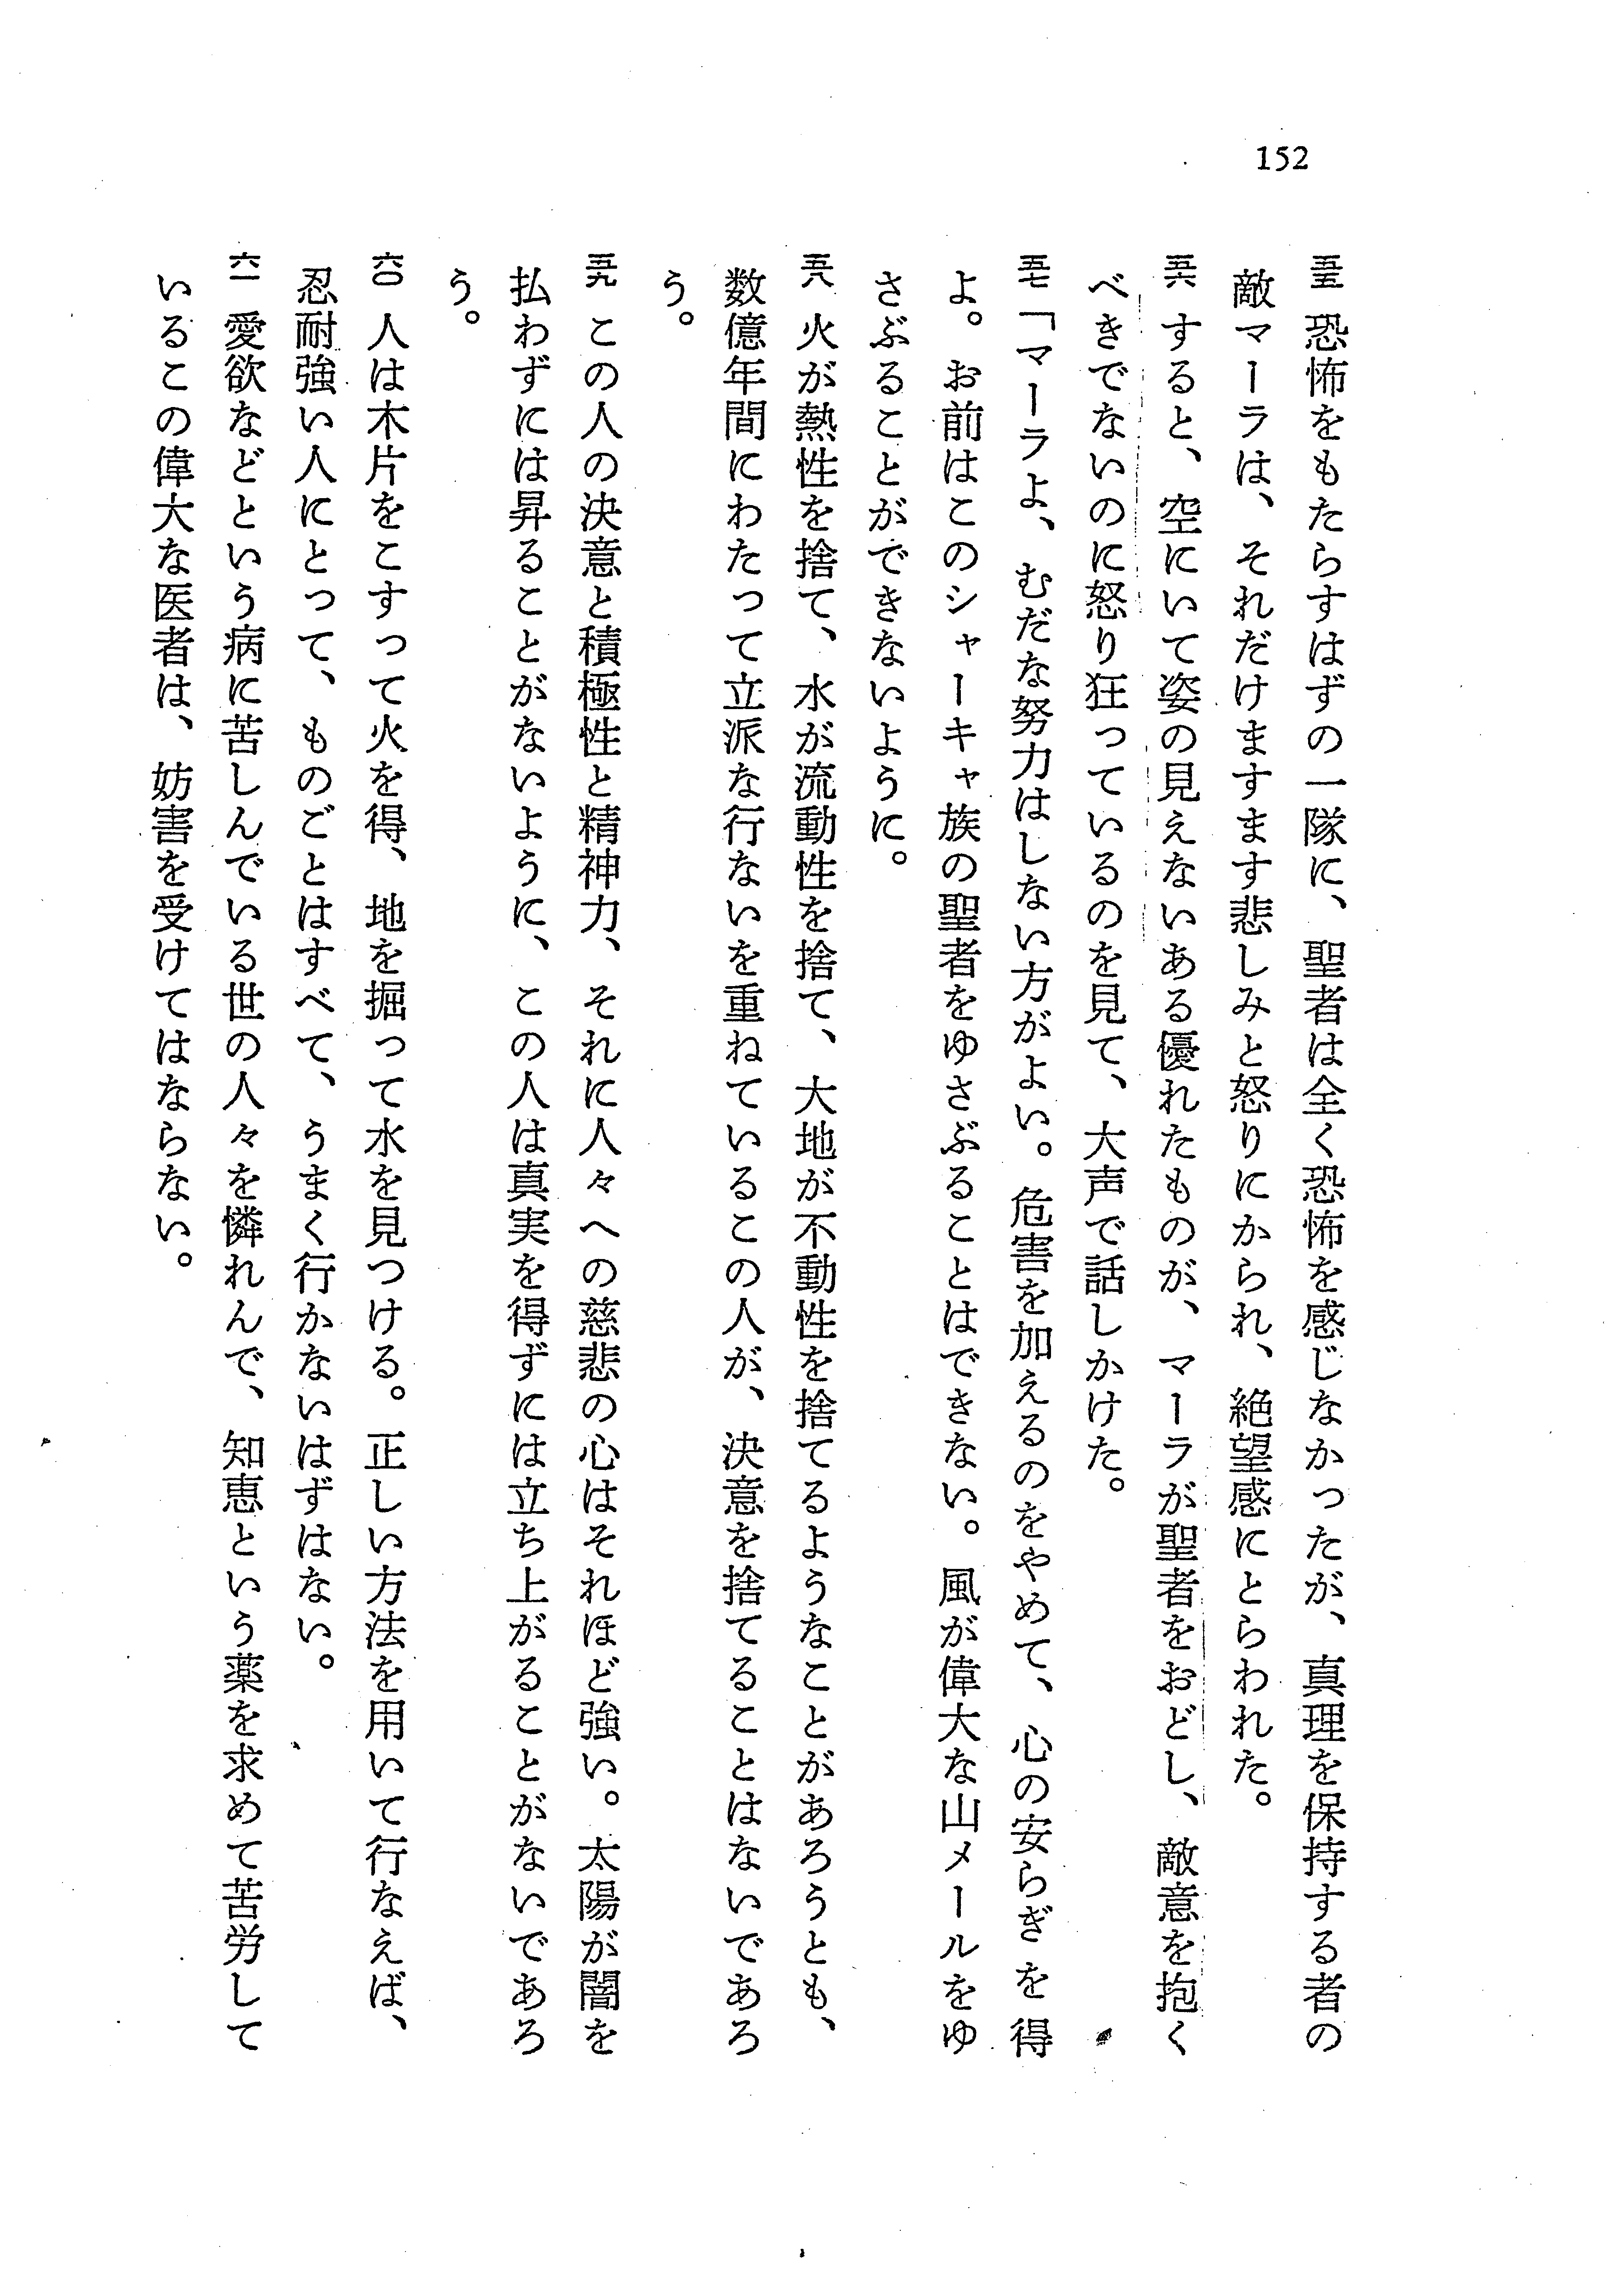 152
五五 恐怖をもたらすはずの一隊に、聖者は全く恐怖を感じなかったが、真理を保持する者の
敵マーラは、それだけますます悲しみと怒りにかられ、絶望感にとらわれた。
五六 すると、空にいて姿の見えないある優れたものが、マーラが聖者をおどし、敵意を抱く
べきでないのに怒り狂っているのを見て、大声で話しかけた。
五七 「マーラよ、むだな努力はしない方がよい。危害を加えるのをやめて、心の安らぎを得
よ。お前はこのシャーキャ族の聖者をゆさぶることはできない。風が偉大な山メールをゆ
さぶることができないように。
五八 火が熱性を捨て、水が流動性を捨て、大地が不動性を捨てるようなことがあろうとも、
数億年間にわたって立派な行ないを重ねているこの人が、決意を捨てることはないであろ
う。
五九 この人の決意と積極性と精神力、それに人々への慈悲の心はそれほど強い。太陽が闇を
払わずには昇ることがないように、この人は真実を得ずには立ち上がることがないであろ
う。
六〇 人は木片をこすって火を得、地を掘って水を見つける。正しい方法を用いて行なえば、
忍耐強い人にとって、ものごとはすべて、うまく行かないはずはない。
六一 愛欲などという病に苦しんでいる世の人々を憐れんで、知恵という薬を求めて苦労して
いるこの偉大な医者は、妨害を受けてはならない。